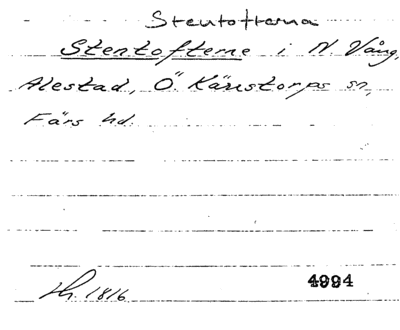 Stentofterna
Stentofterne i N. Vång,
Alestad, Ö. Kärrstorps sn,
Färs hd.
Lh. 1816
4994